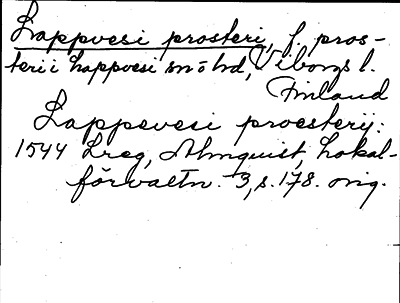 Lappvesi prosteri, f. pros-
teri i Lappvesi sn o hd, Viborgs l.
Finland
Lappevesi proesterij:
1544 Lreg, Almquist, Lokal-
förvaltn. 3, s. 178. orig.